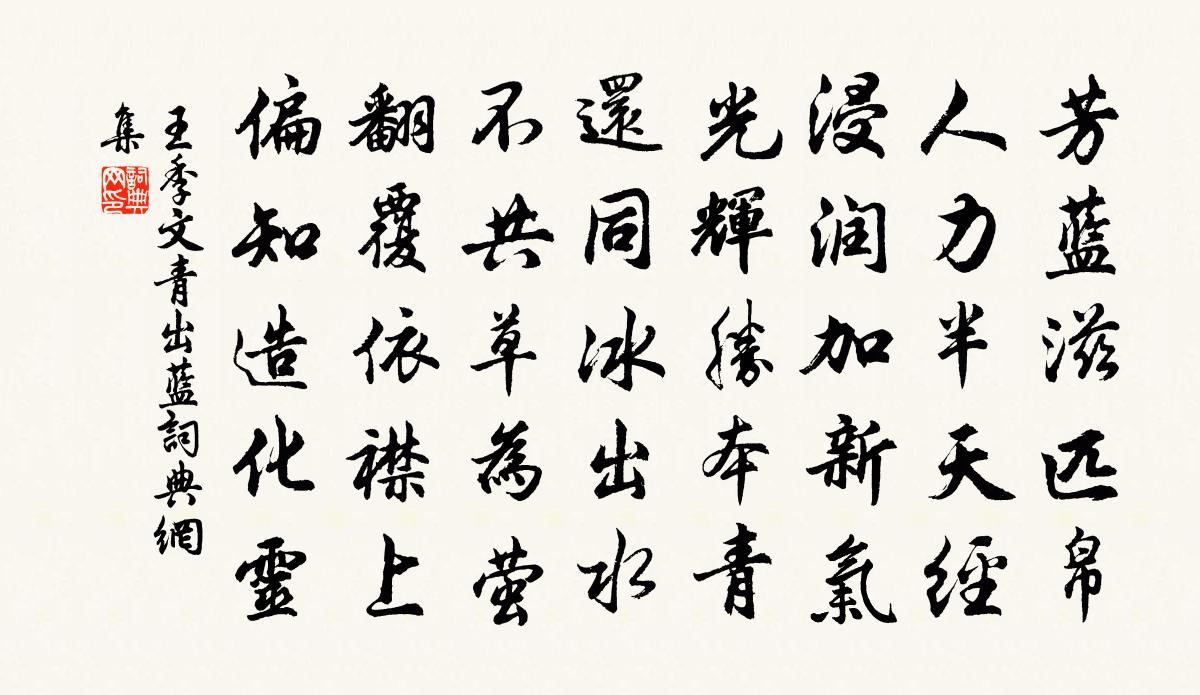 芳藍滋匹帛
人力半天經
浸润加新氣
光輝勝本青
還同冰出水
不共草為萤
翻覆依襟上
偏知造化靈
王季文青出藍詞典網
集
詞典
网印